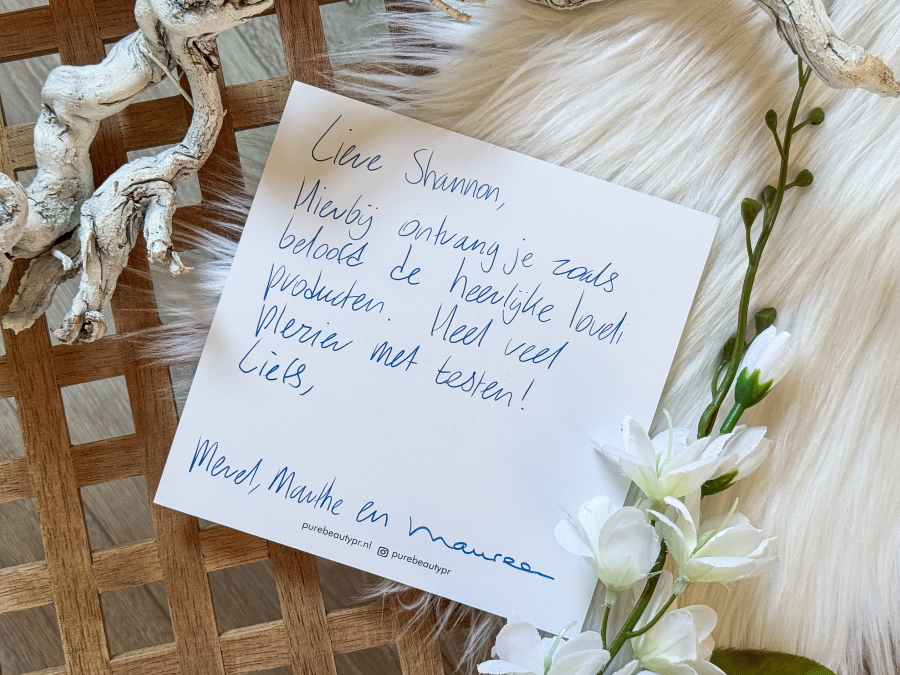 Lieve Shannon,
Hierbij ontvang je zoals
beloofd de heerlijke lovli
producten. Heel veel
plezier met testen!
Liefs,
Merel, Marthe en Maureen
purebeautypr.nl purebeautypr